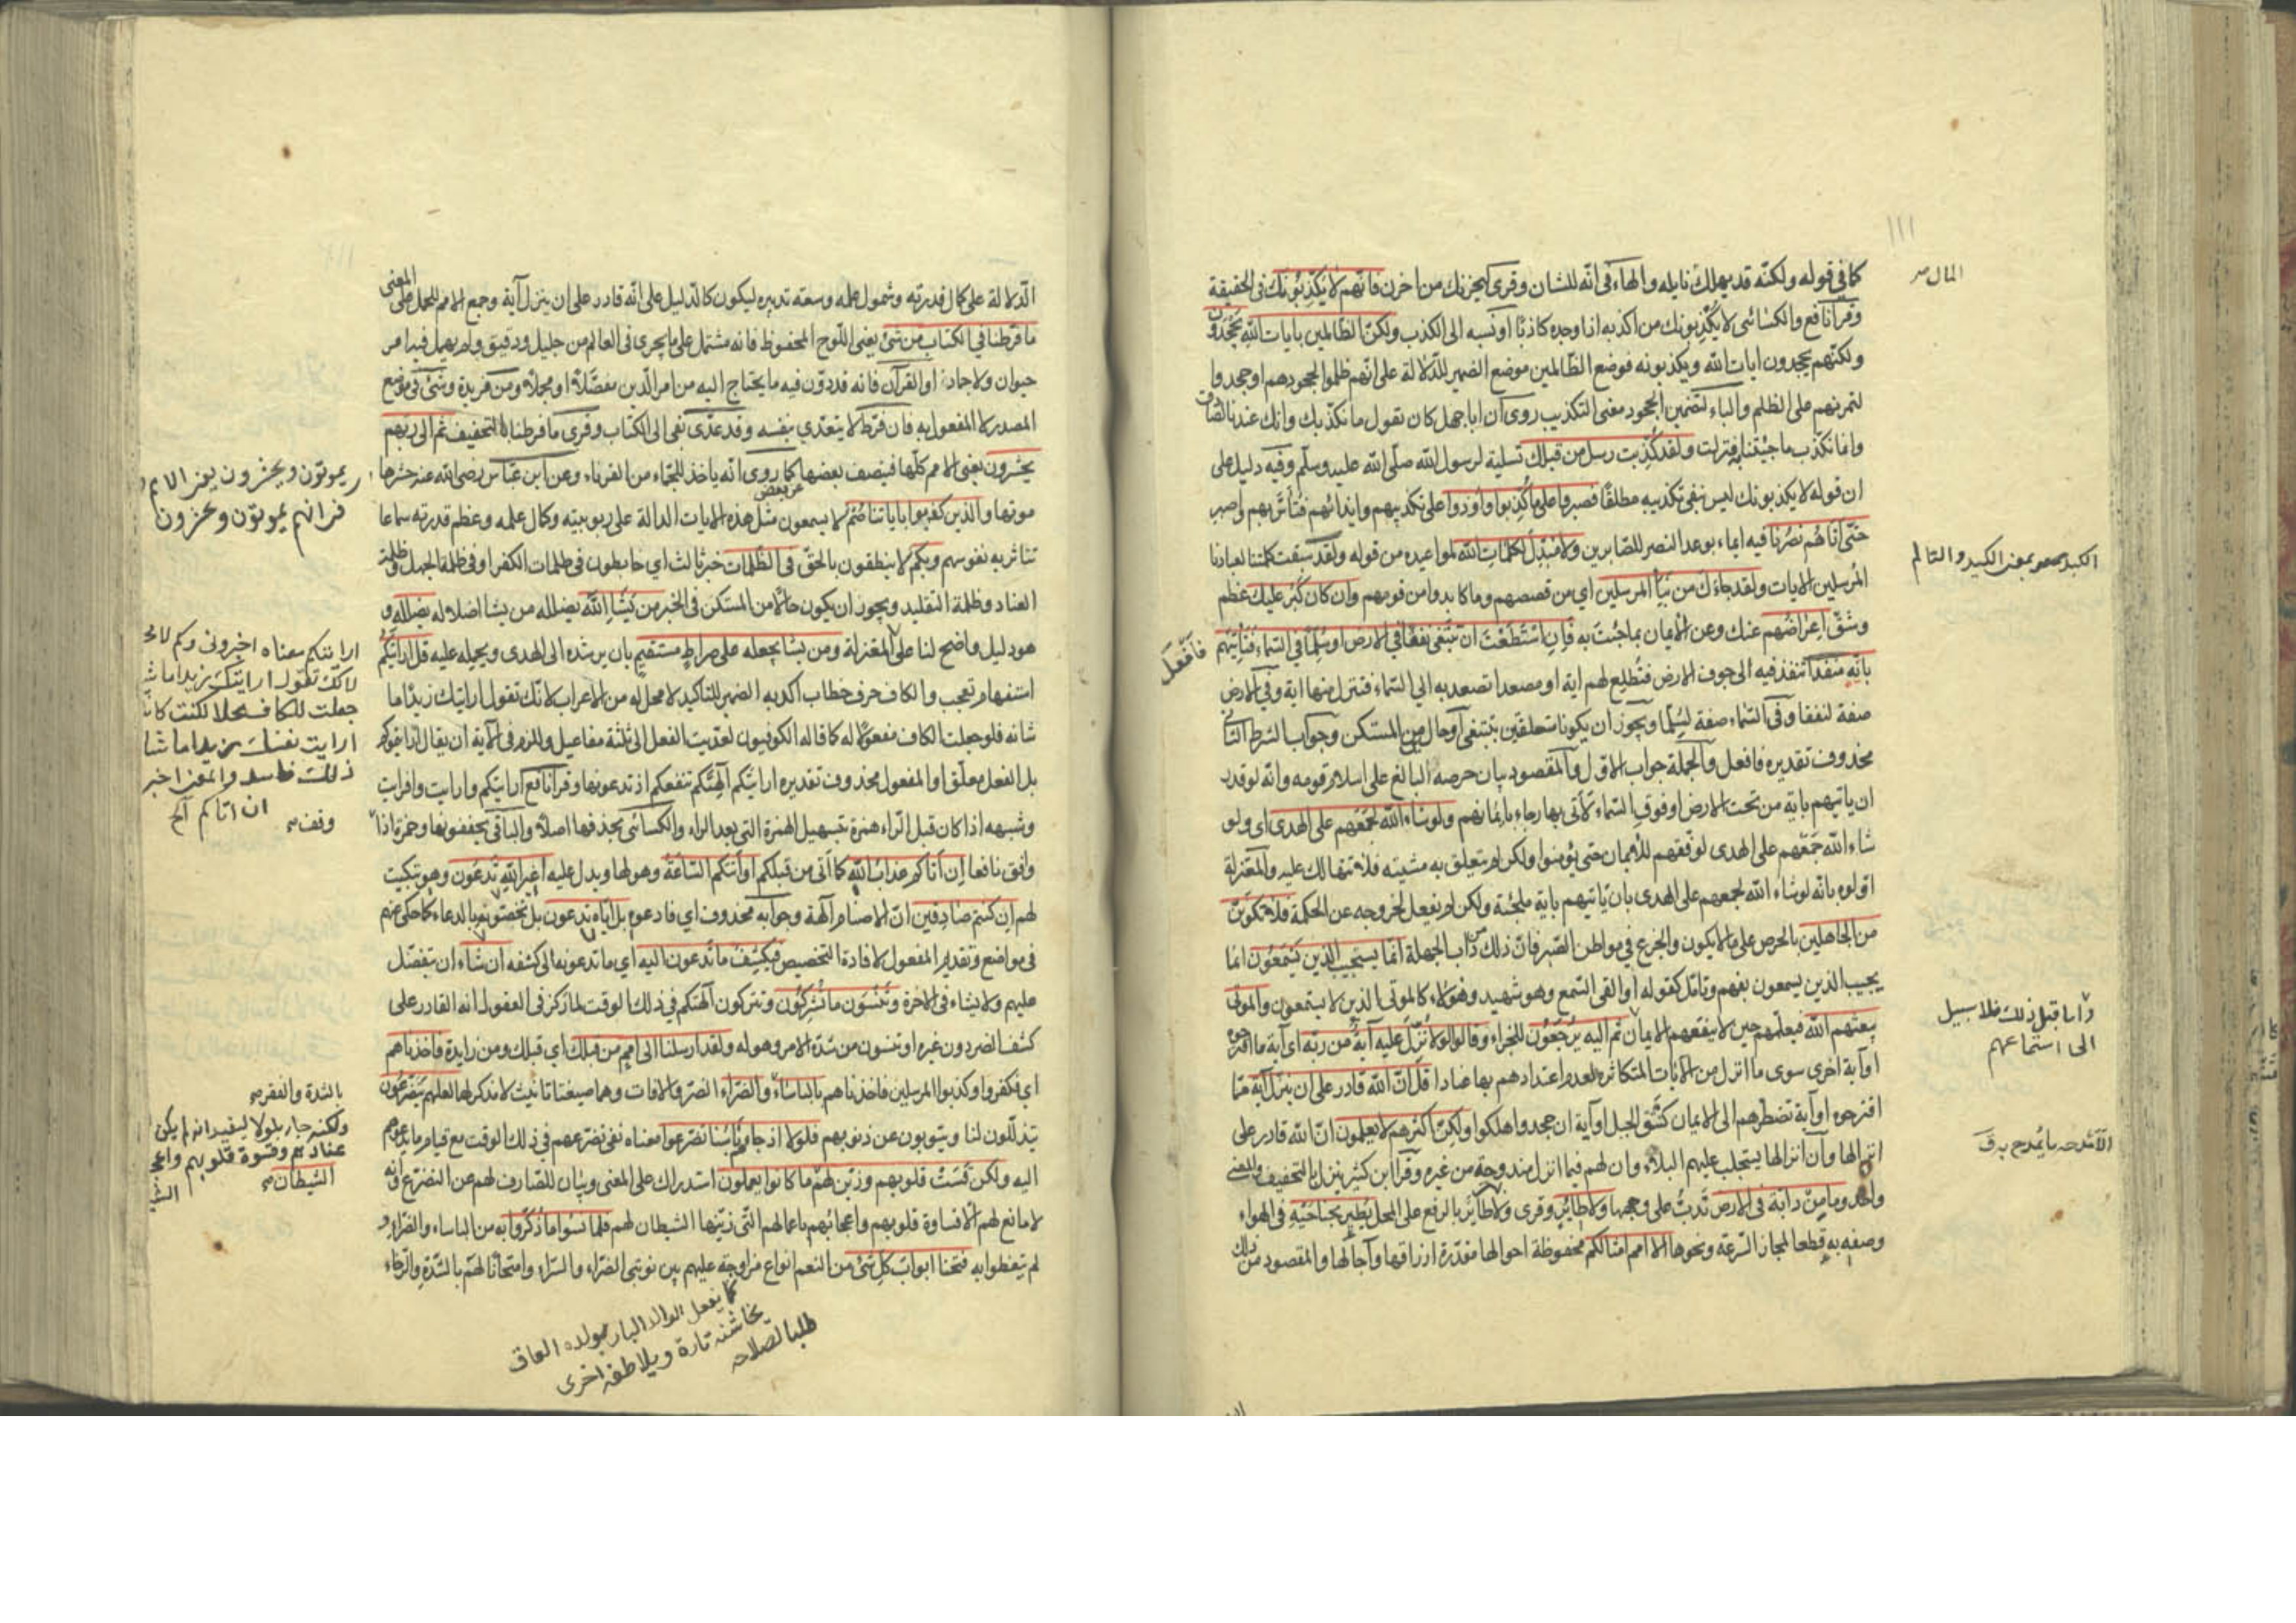 ١١١
كما في قوله ولكنه قد يهلك نايله والهاء في انه للشان وقرئ ليحزنك من احزن فانهم لا يكذبونك في الحقيقة
المال
وقرأ نافع والكسائى لا يكذبونك من اكذبه اذا وجده كاذبا او نسبه الى الكذب ولكن الظالمين بايات الله يجحدون
ولكنهم يجحدون ايات الله ويكذبونه فوضع الظالمين موضع الضمير للدلالة على انهم ظلموا لجحودهم او جحدوا
لتمرنهم على الظلم والباء لتضمين الجحود معنى التكذيب روى ان ابا جهل كان يقول ما نكذبك وانك عندنا لصادق
وانما نكذب ما جئتنا به فنزلت ولقد كذبت رسل من قبلك تسلية لرسول الله صلى الله عليه وسلم وفيه دليل على
ان قوله لا يكذبونك ليس لنفي تكذيبه مطلقا فصبروا على ما كذبوا واوذوا على تكذيبهم وايذائهم فتأس بهم واصبر
حتى اتاهم نصرنا فيه ايماء بوعد النصر للصابرين ولا مبدل لكلمات الله لمواعيده من قوله ولقد سبقت كلمتنا لعبادنا
المرسلين الايات ولقد جاءك من نبأ المرسلين اي من قصصهم وما كابدوا من قومهم وان كان كبر عليك عظم
الكبد بمعنى الكبيد والتالم
وشق اعراضهم عنك وعن الايمان بما جئت به فان استطعت ان تبتغى نفقا في الارض او سلما في السماء فتأتيهم
فافعل
باية منفذا تنفذ فيه الى جوف الارض فتطلع لهم اية او مصعدا تصعد به الى السماء فتنزل منها اية وفي الارض
صفة لنفقا وفي السماء صفة لسلما ويجوز ان يكونا متعلقين بتبتغى او حالين من المستكن وجواب الشرط الثاني
محذوف تقديره فافعل والجملة جواب الاول والمقصود بيان حرصه البالغ على اسلام قومه وانه لو قدر
ان ياتيهم باية من تحت الارض او فوق السماء لاتى بها رجاء بايمانهم ولو شاء الله لجمعهم على الهدى اى ولو
شاء الله جمعهم على الهدى لوفقهم للايمان حتى يؤمنوا ولكن لم يتعلق به مشيته فلا تتهالك عليه والمعتزلة
اولوه بانه لو شاء الله لجمعهم على الهدى بان ياتيهم باية ملجئة ولكن لم يفعل لخروجه عن الحكمة فلا تكونن
من الجاهلين بالحرص على ما لا يكون والجزع في مواطن الصبر فان ذلك من داب الجهلة انما يستجيب الذين يسمعون انما
يجيب الذين يسمعون بفهم وتامل كقوله او القى السمع وهو شهيد وهؤلاء كالموتى الذين لا يستمعون والموتى
يبعثهم الله فيعلمهم حين لا ينفعهم الايمان ثم اليه يرجعون للجزاء وقالوا لولا نزل عليه آية من ربه اى آية مما اقترحوه
واما قبل ذلك فلا سبيل
الى استماعهم
او آية اخرى سوى ما انزل من الايات المتكاثرة لعدم اعتدادهم بها عنادا قل ان الله قادر على ان ينزل آية مما
اقترحوه او آية تضطرهم الى الايمان كنتق الجبل او آية ان جحدوا هلكوا ولكن اكثرهم لا يعلمون ان الله قادر على
انزالها وان انزالها يستجلب عليهم البلاء وان لهم فيما انزل مندوحة من غيره وقرأ ابن كثير ينزل بالتخفيف والمعنى
واحد وما من دابة في الارض تدب على وجهها ولا طائر وقرى ولا طائر بالرفع على المحل يطير بجناحيه في الهواء
وصفه به قطعا لمجاز السرعة ونحوها الا امم امثالكم محفوظة احوالها مقدرة ارزاقها وآجالها والمقصود من ذلك
الدلالة على كمال قدرته وشمول علمه وسعة تدبيره ليكون كالدليل على انه قادر على ان ينزل آية وجمع الامم للحمل على المعنى
ما فرطنا في الكتاب من شئ يعنى اللوح المحفوظ فانه مشتمل على ما يجرى فى العالم من جليل ودقيق ولم يهمل فيه امر
حيوان ولا جاد او القرآن فانه قد دون فيه ما يحتاج اليه من امر الدين مفصلا او مجملا ومن مزيدة وشئ فى موضع
المصدر لا المفعول به فان فرط لا يتعدى بنفسه وقد عدى بفى الى الكتاب وقرى ما فرطنا بالتخفيف ثم الى ربهم
يحشرون يعنى الامم كلها فينصف بعضها من بعض كما روى انه ياخذ للجماء من القرناء وعن ابن عباس رضى الله عنه حشرها
موتها والذين كذبوا باياتنا صم لا يسمعون مثل هذه الايات الدالة على ربوبيته وكمال علمه وعظم قدرته سماعا
يموتون ويحشرون يعنى الامم
تتاثر به نفوسهم وبكم لا ينطقون بالحق فى الظلمات خبر ثالث اى خابطون في ظلمات الكفر او فى ظلمة الجهل وظلمة
العناد وظلمة التقليد ويجوز ان يكون حالا من المستكن فى الخبر من يشا الله يضلله من يشا اضلاله يضلله و
هو دليل واضح لنا على المعتزلة ومن يشا يجعله على صراط مستقيم بان يرشده الى الهدى ويحمله عليه قل ارايتكم
استفهام وتعجب والكاف حرف خطاب اكد به الضمير للتاكيد لا محل له من الاعراب لانك تقول ارايتك زيدا ما
شانه فلو جعلت الكاف مفعولا له كما قاله الكوفيون لعديت الفعل الى ثلثة مفاعيل وللزم فى الآية ان يقال ارايتموكم
بل الفعل معلق او المفعول محذوف تقديره ارايتكم آلهتكم تنفعكم اذ تدعونها وقرأ نافع ارايتكم وارايت وافرايت
وشبهه اذا كان قبل الراء همزة بتسهيل الهمزة التى بعد الراء والكسائى يحذفها اصلا والباقى يحققونها وحمزة اذا
ارايتكم معناه اخبرونى وكم لا مح
لانك تقول ارايتك زيدا ما ش
جعلت للكاف محلا لكنت كانا
ارايت نفسك زيدا ما شا
ذلك فاسد والمعنى اخبر
ان اتاكم آلخ
وقف
وافق نافعا ان اتاكم عذاب الله كما اتى من قبلكم او اتتكم الساعة وهولها ويدل عليه اغير الله تدعون وهو تبكيت
لهم ان كنتم صادقين ان الاصنام آلهة وجوابه محذوف اى فادعوه بل اياه تدعون بل تخصونه بالدعاء كما حكى عنهم
فى مواضع وتقديم المفعول لافادة التخصيص فيكشف ما تدعون اليه اى ما تدعونه الى كشفه ان شاء ان يتفضل
عليهم ولا يشاء فى الاخرة وتنسون ما تشركون وتتركون آلهتكم في ذلك الوقت لما ركز فى العقول انه القادر على
كشف الضر دون غيره او تنسون من شدة الامر وهوله ولقد ارسلنا الى امم من قبلك اى قبلك ومن زايدة فاخذناهم
اى فكفروا وكذبوا المرسلين فاخذناهم بالباساء والضراء الضر والافات وهما صيغتا تانيث لا مذكر لها لعلهم يتضرعون
بالشدة والفقر
يتذللون لنا ويتوبون عن ذنوبهم فلولا اذ جاءهم باسنا تضرعوا معناه نفى تضرعهم في ذلك الوقت مع قيام ما يدعوهم
اليه ولكن قست قلوبهم وزين لهم ما كانوا يعملون استدراك على المعنى وبيان للصارف لهم عن التضرع وانه
ولكنه جاء بلولا ليفيد انه لم يكن
عنادهم وقسوة قلوبهم واعج
الشيطان
لا مانع لهم الا قساوة قلوبهم واعجابهم باعمالهم التى زينها الشيطان لهم فلما نسوا ما ذكروا به من الباساء والضراء و
لم يتعظوا به فتحنا ابواب كل شئ من النعم انواع مزاوجة عليهم بين نوبتى الضراء والسراء وامتحانا لهم بالشدة والرخاء
كما يفعل الوالد البار بولده العاق
يخاشنه تارة ويلاطفه اخرى
طلبا لصلاحه